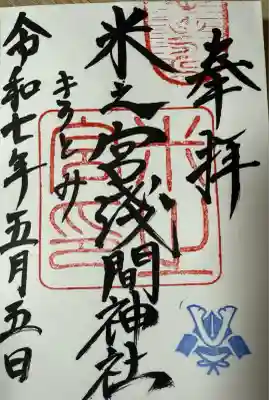 奉拝
米之宮浅間神社
きうとみ
令和七年五月五日